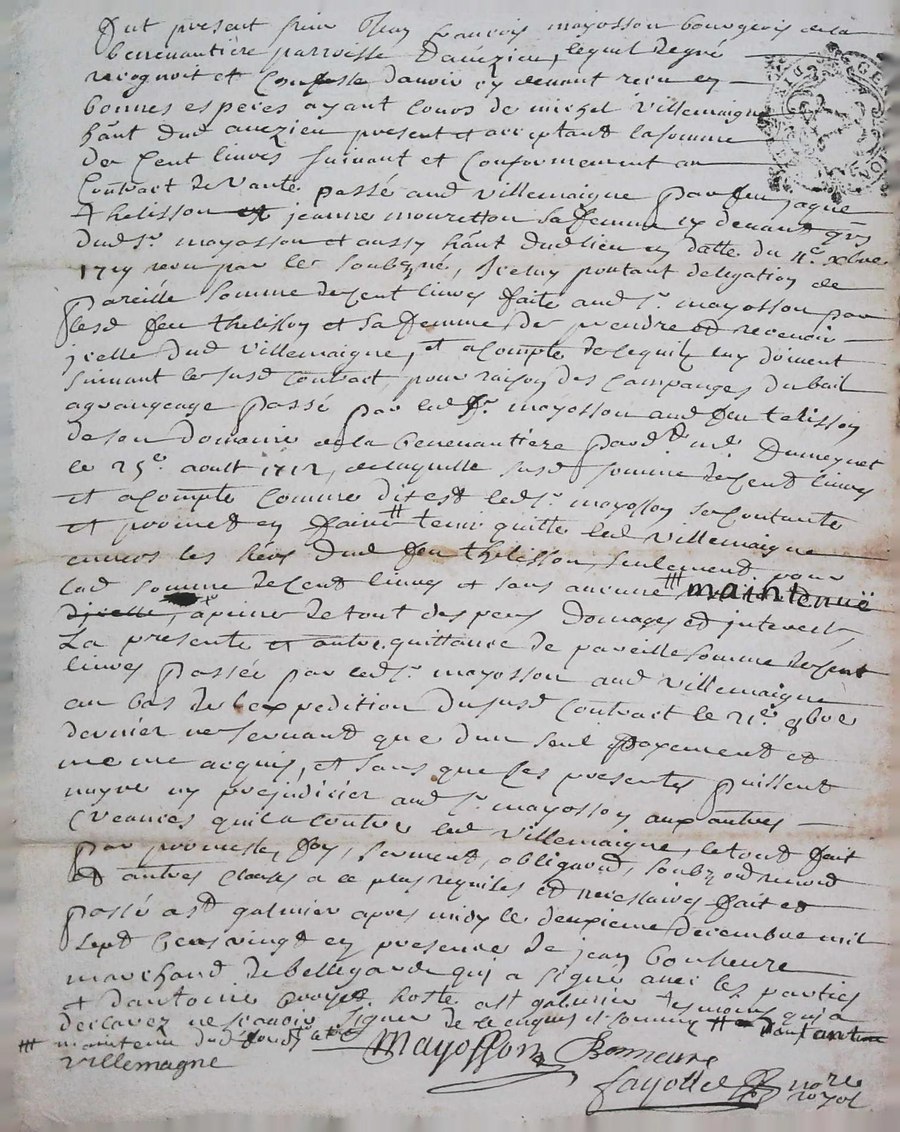 Fut present sieur Jean francois mayosson bourgeois de la
benenantiere parroisse daveizieu, lequel de gré
recognoit et Confesse davoir cy devant receu en
bonnes especes ayant Cours de michel Villemaigne
hant dud aveizieu present et acceptant la somme
de Cent livres suivant et Conformement au
Contract de vante passé aud Villemaigne par feu jaque
thelisson et jeanne mouretton sa femme cy devant
dud Sr mayosson et aussy hant dud lieu en datte du 4e xbre
1719 receu par le soubsigné, Iceluy portant delegation de
pareille somme de Cent livres faite aud sr mayosson par
lesd feu thelisson et sa femme de prendre et recevoir
jcelle dud Villemaigne, et acompte de ce quils luy doivent
suivant le susd Contract pour raison des Campanges du bail
a grangeage passé par led Sr mayosson aud feu telisson
de son domaine de la benenantiere pardt me Dumeynet
le 25e aoult 1712, de laquelle susd somme de Cent livres
et acompte Comme dit est led Sr mayosson se Contante
et promet en faire tenir quitte led Villemaigne
envers les hers dud feu thelisson, seulement pour
lad somme de Cent livres et sans aucune maintenuë
dicelle, a peine de tout despens domages et interests,
La presente et autre quittance de pareille somme de Cent
livres passée par led Sr mayosson aud Villemaigne
au bas de lexpedition du susd Contract le 21e 9bre
dernier ne servant que dun seul payement et
meme acquis, et sans que ces presentes puissent
nuyre ny prejudicier aud Sr mayosson aux autres
Creances quil a contre led Villemaigne, le tout fait
par promesse, foy, serment, obligaon, soubz on renon
et autres clauses a ce plus requises et necessaires fait et
passé a st galmier apres midy le deuxieme decembre mil
sept cens vingt en presence de jean bonheure
marchand de bellegarde qui a signé avec les parties
et dantoine hotte a st galmier tesmoins qui a
declaré ne scavoir signer de ce enquis et sommé
maintenue dud fonds
Villemagne
Mayosson Bonneure
fayolle nore
royal